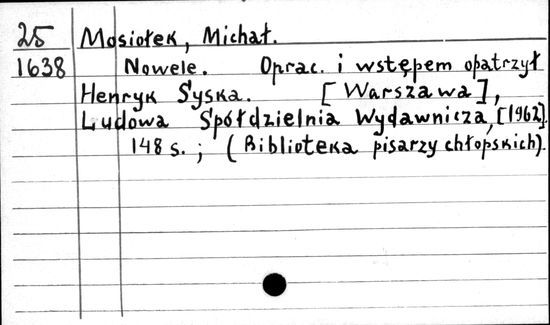 25 Mosiołek, Michał.
1638 Nowele. Oprac. i wstępem opatrzył
Henryk Syska. [Warszawa],
Ludowa Spółdzielnia Wydawnicza, [1962].
148 s. ; (Biblioteka pisarzy chłopskich).